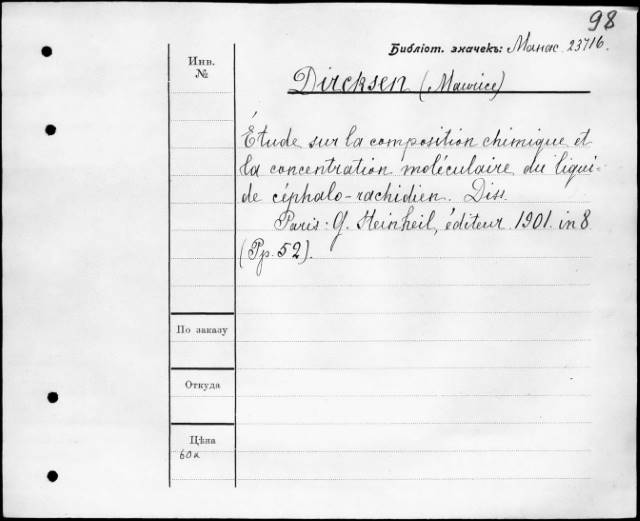 98
Библіот. значекъ: Манас. 23716.
Инв.
№
Dircksen (Maurice)
Étude sur la composition chimique et
la concentration moléculaire du liqui-
de céphalo-rachidien. Diss.
Paris: G. Steinheil, éditeur. 1901. in 8
(Pp. 52).
По заказу
Откуда
Цѣна
60к